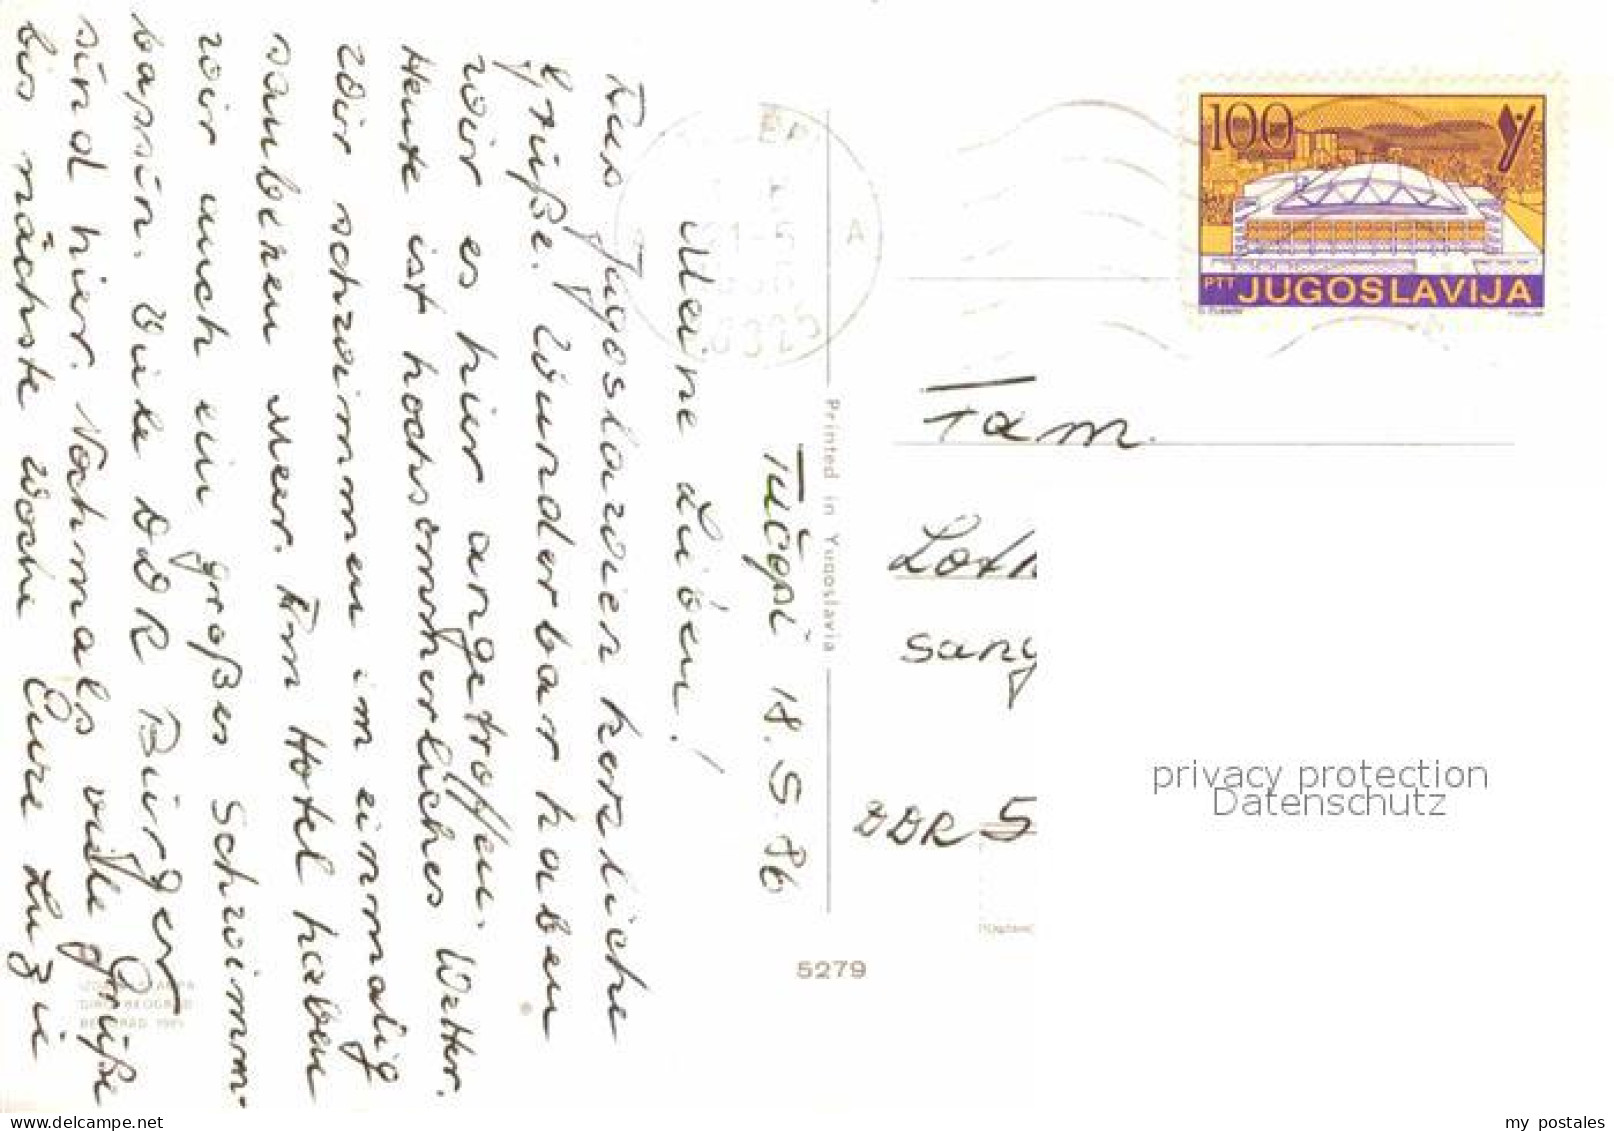 Tučepi 18.5.86
Meine Lieben!
Aus Jugoslawien herzliche
Grüße. Wunderbar haben
wir es hier angetroffen.
Heute ist hochsommerliches Wetter.
Wir schwimmen im einmalig
sauberen Meer. Am Hotel haben
wir auch ein großes Schwimm-
bassin. Viele DDR Bürger
sind hier. Nochmals viele Grüße
bis nächste Woche Eure
Printed in Yugoslavia
5279
100
PTT JUGOSLAVIJA
A
Fam.
Loth
sang
DDR 5
privacy protection
Datenschutz
delcampe.net
my postales